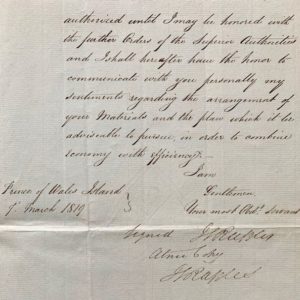 authorized until I may be honored with
the further Orders of the Superior Authorities
and I shall hereafter have the honor to
communicate with you personally my
sentiments regarding the arrangement of
your Materials and the plan which it be
adviseable to pursue, in order to combine
economy with efficiency.—
I am
Gentlemen,
Prince of Wales Island
March 1819
Your most Obdt. Servant
Signed
A true Copy